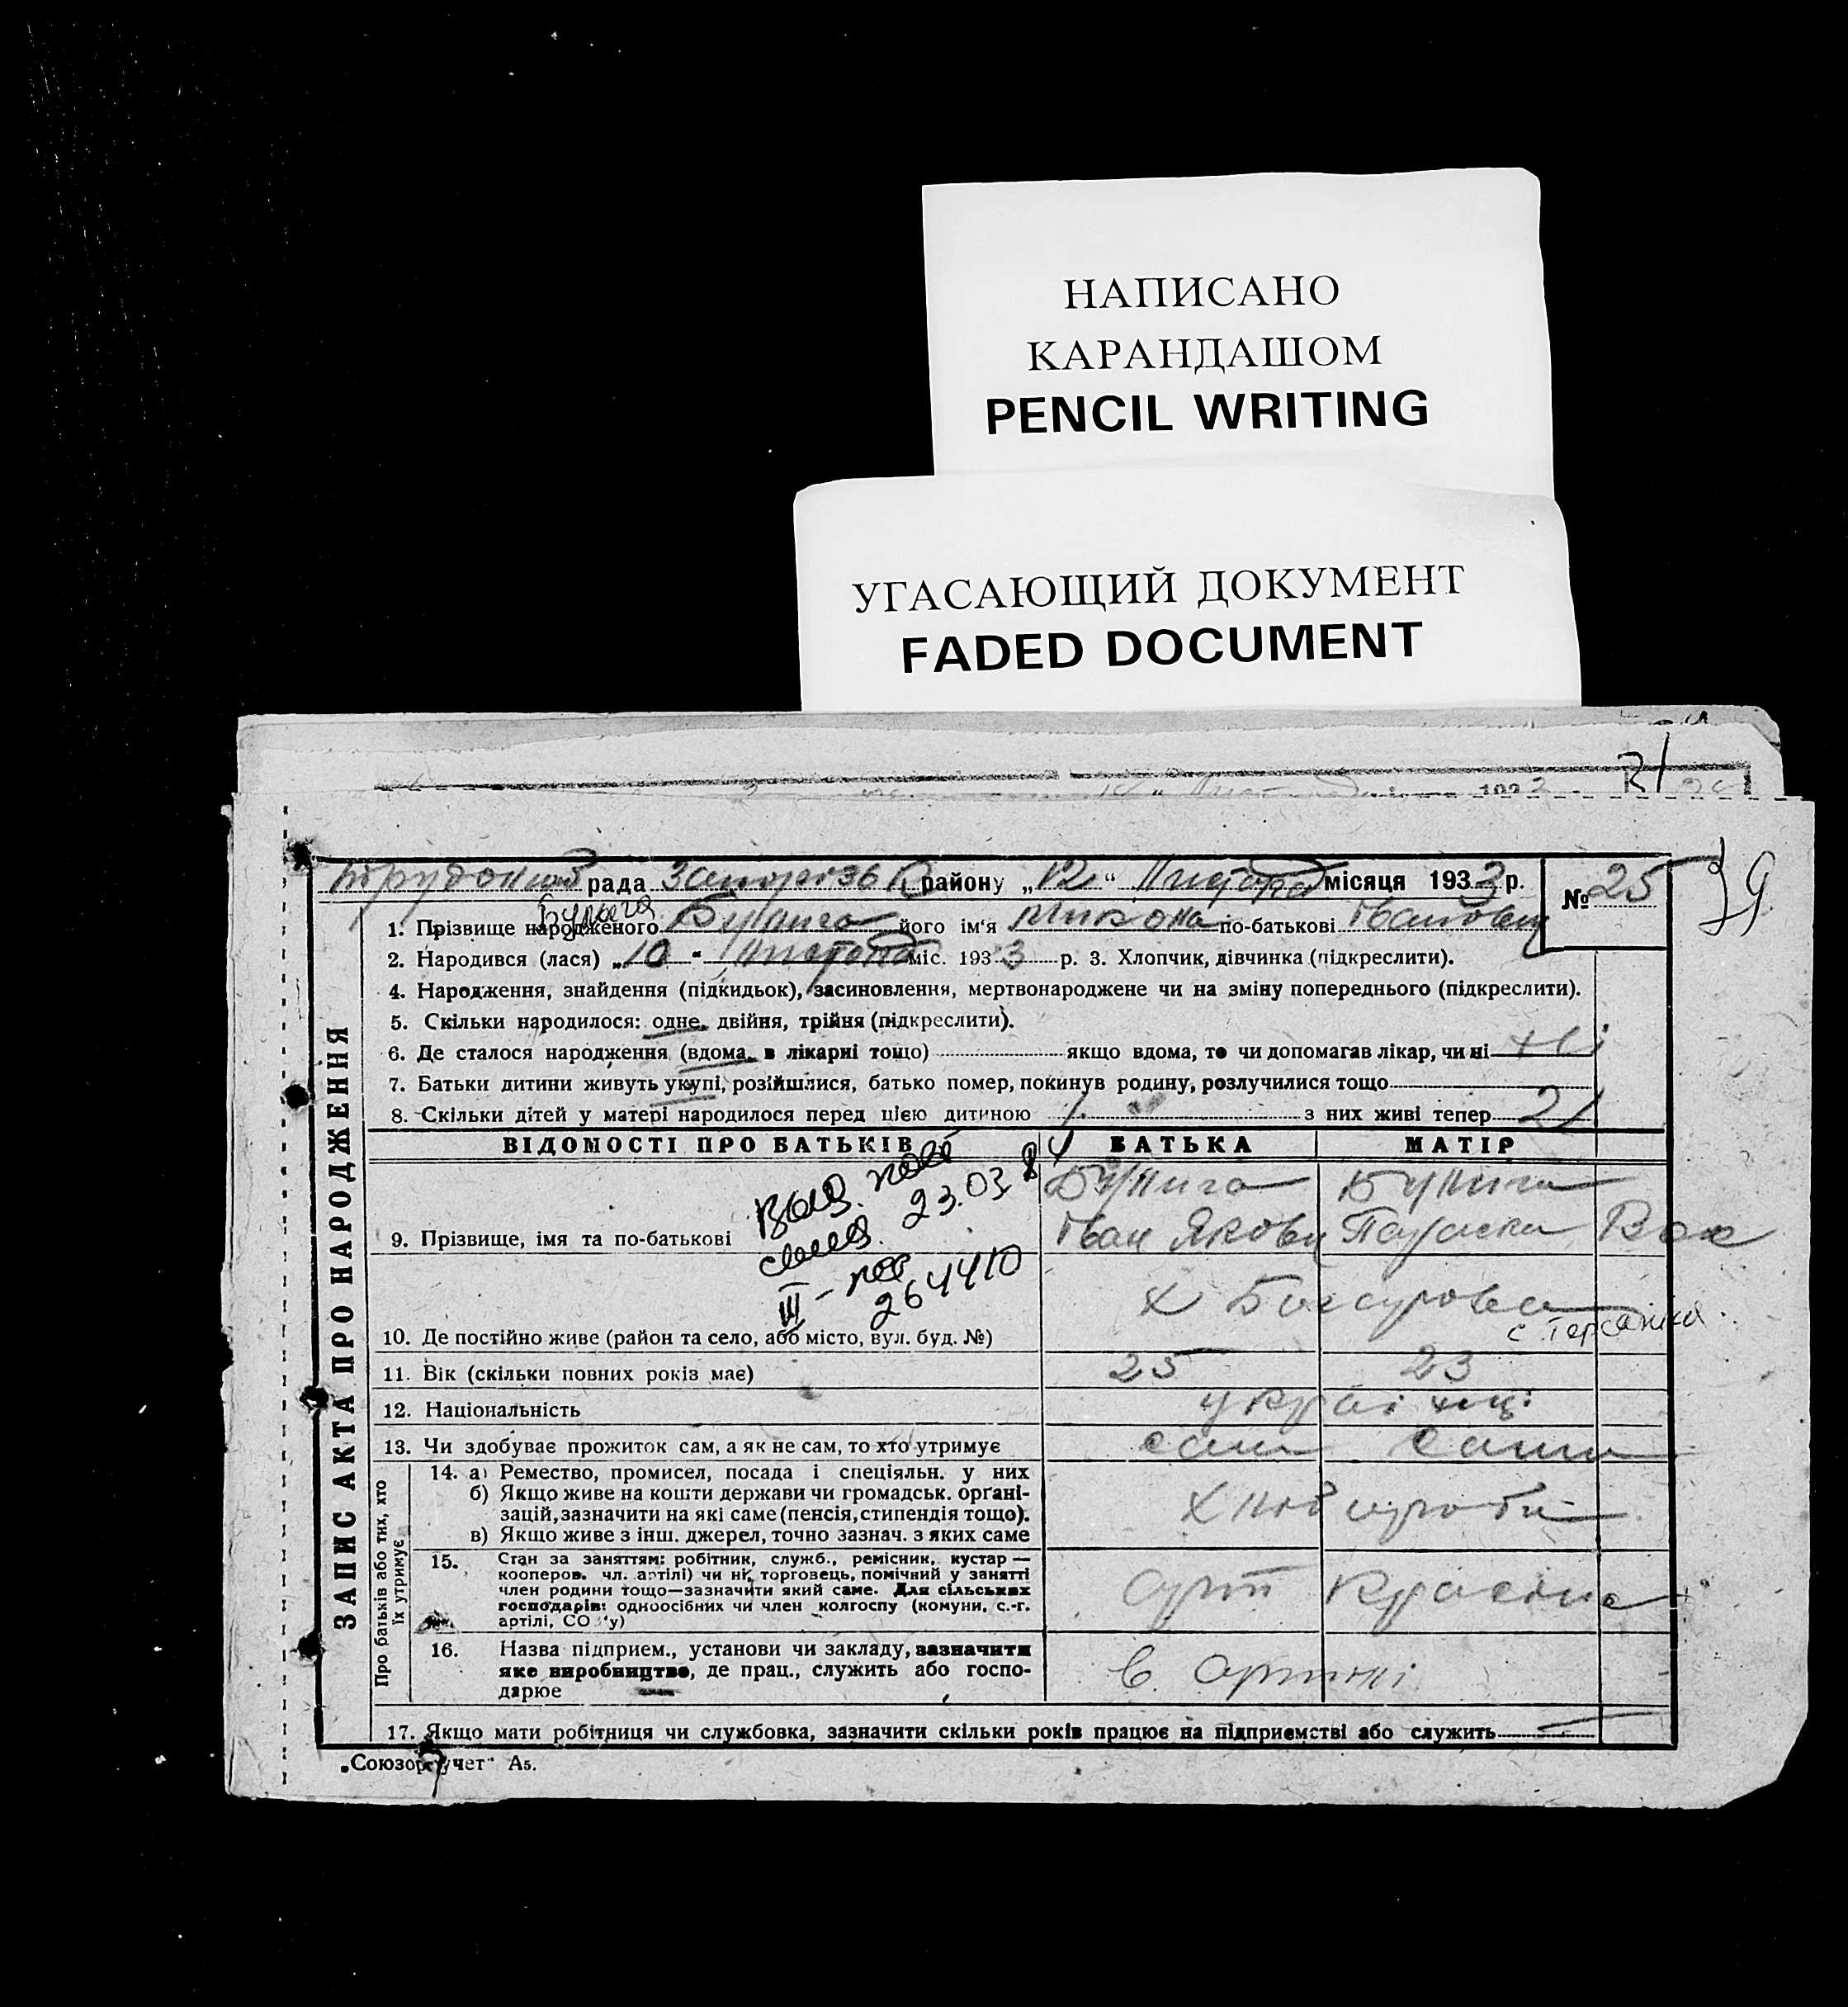 НАПИСАНО
КАРАНДАШОМ
PENCIL WRITING
УГАСАЮЩИЙ ДОКУМЕНТ
FADED DOCUMENT
31
39
рада району „12“ Листопад місяця 1933 р. № 25
1. Прізвище народженого його ім'я Микола по-батькові Іванович
2. Народився (лася) „10“ Листопад міс. 1933 р. 3. Хлопчик, дівчинка (підкреслити).
4. Народження, знайдення (підкидьок), засиновлення, мертвонароджене чи на зміну попереднього (підкреслити).
5. Скільки народилося: одне, двійня, трійня (підкреслити).
6. Де сталося народження (вдома, в лікарні тощо) якщо вдома, то чи допомагав лікар, чи ні ні
7. Батьки дитини живуть укупі, розійшлися, батько помер, покинув родину, розлучилися тощо
8. Скільки дітей у матері народилося перед цією дитиною 1 з них живі тепер 2
ЗАПИС АКТА ПРО НАРОДЖЕННЯ
ВІДОМОСТІ ПРО БАТЬКІВ БАТЬКА МАТІР
23.03.84
III –
264410
9. Прізвище, імя та по-батькові Іван Якови Параска
10. Де постійно живе (район та село, або місто, вул. буд. №) х
11. Вік (скільки повних років має) 25 23
12. Національність українці
13. Чи здобуває прожиток сам, а як не сам, то хто утримує сам сама
Про батьків або тих, хто їх утримує
14. а) Ремество, промисел, посада і спеціяльн. у них
б) Якщо живе на кошти держави чи громадськ. органі-
зацій, зазначити на які саме (пенсія, стипендія тощо).
в) Якщо живе з інш. джерел, точно зазнач. з яких саме
Хлібороби
15. Стан за заняттям: робітник, служб., ремісник, кустар —
кооперов. чл. артілі) чи ні, торговець, помічний у занятті
член родини тощо—зазначити який саме. Для сільських
господарів: одноосібних чи член колгоспу (комуни, с.-г.
артілі, СОЗ'у)
арт
16. Назва підприєм., установи чи закладу, зазначити
яке виробництво, де прац., служить або госпо-
дарює
в артілі
17. Якщо мати робітниця чи службовка, зазначити скільки років працює на підприємстві або служить —
„Союзоргучет“ А5.